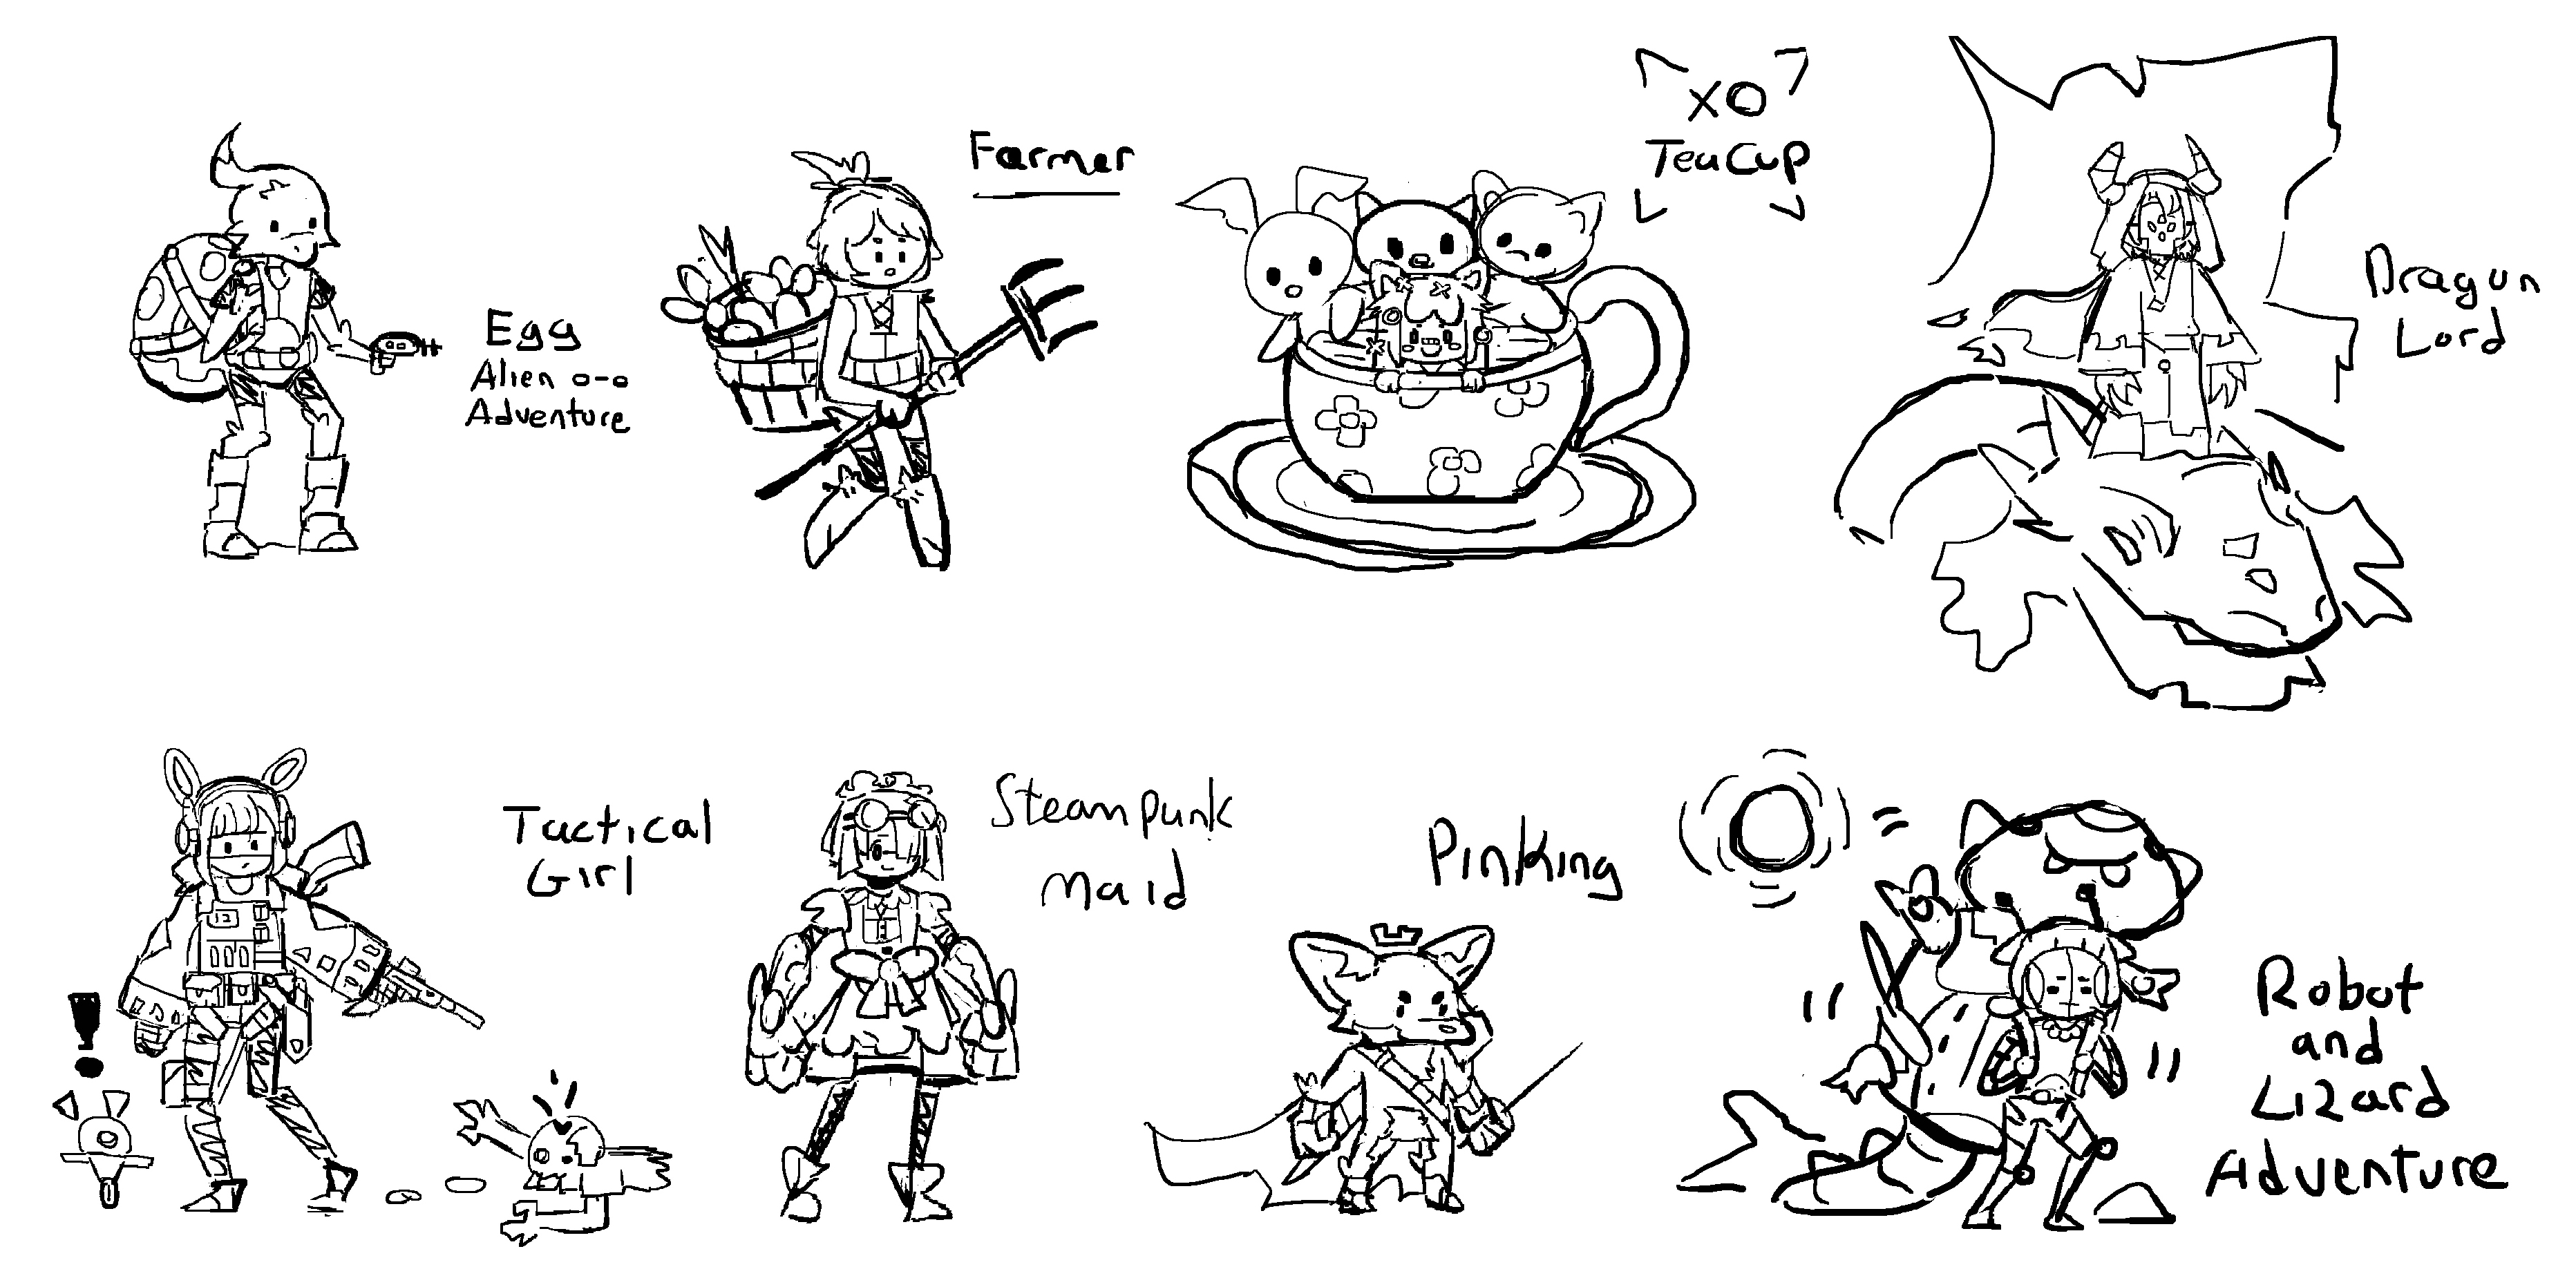 Egg
Alien o-o
Adventure
Farmer
XO
TeaCup
Dragon
Lord
Tactical
Girl
Steampunk
Maid
Pinking
Robot
and
Lizard
Adventure